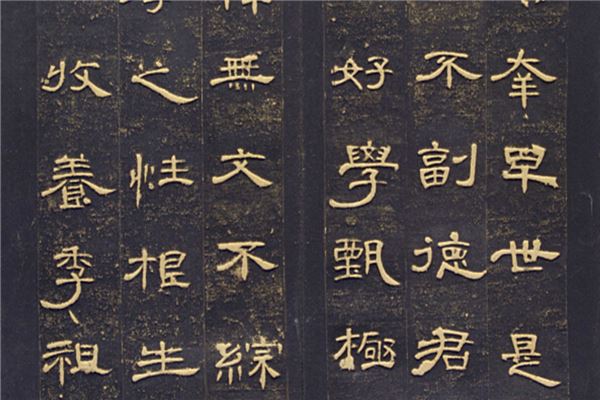 幸早世是
不副德君
好學甄極
無文不綜
之性根生
收養季祖